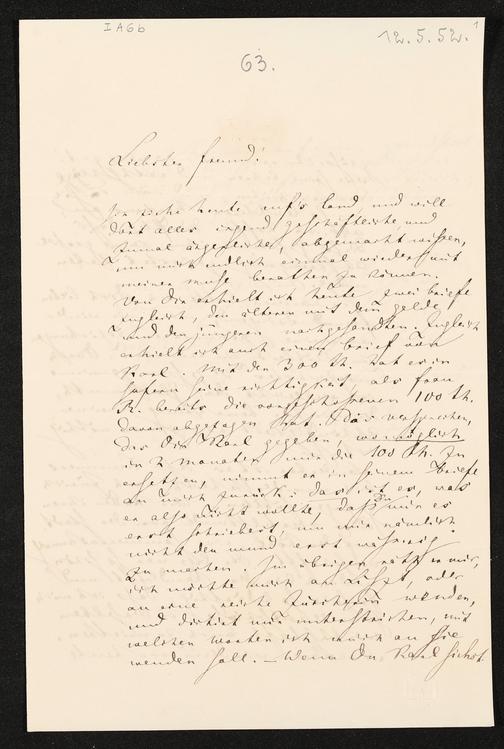 I A 6 b
12. 5. 52.
1
63.
Liebster freund!
Ich ziehe heute auf's land und will
dort alles irgend geschäftliche, und
zumal ärgerliche, abgemacht wissen,
um mich endlich einmal wieder mit
meiner muse berathen zu können.
Von dir erhielt ich heute zwei briefe
zugleich, den älteren mit dem gelde,
und den jüngeren nachgesandten. Zugleich
erhielt ich auch einen brief von
Karl. Mit den 300 th. hat es in
sofern seine richtigkeit, als frau
R. bereits die vorgeschossenen 100 th.
davon abgezogen hat. Das versprechen,
das dir Karl gegeben, womöglich
in 2 monaten mir die 100 th. zu
ersetzen, nimmt er in seinem briefe
an mich zurück: das ist es, was
er also nicht wollte, daß du mir es
erst schriebest, um mir nämlich
nicht den mund erst wässrig
zu machen. Im übrigen räth er mir,
ich möchte mich an Liszt, oder
an eine reiche Züricherin wenden,
und dictirt mir unterstrichen, mit
welchen worten ich mich an sie
wenden soll. – Wenn du Karl siehst